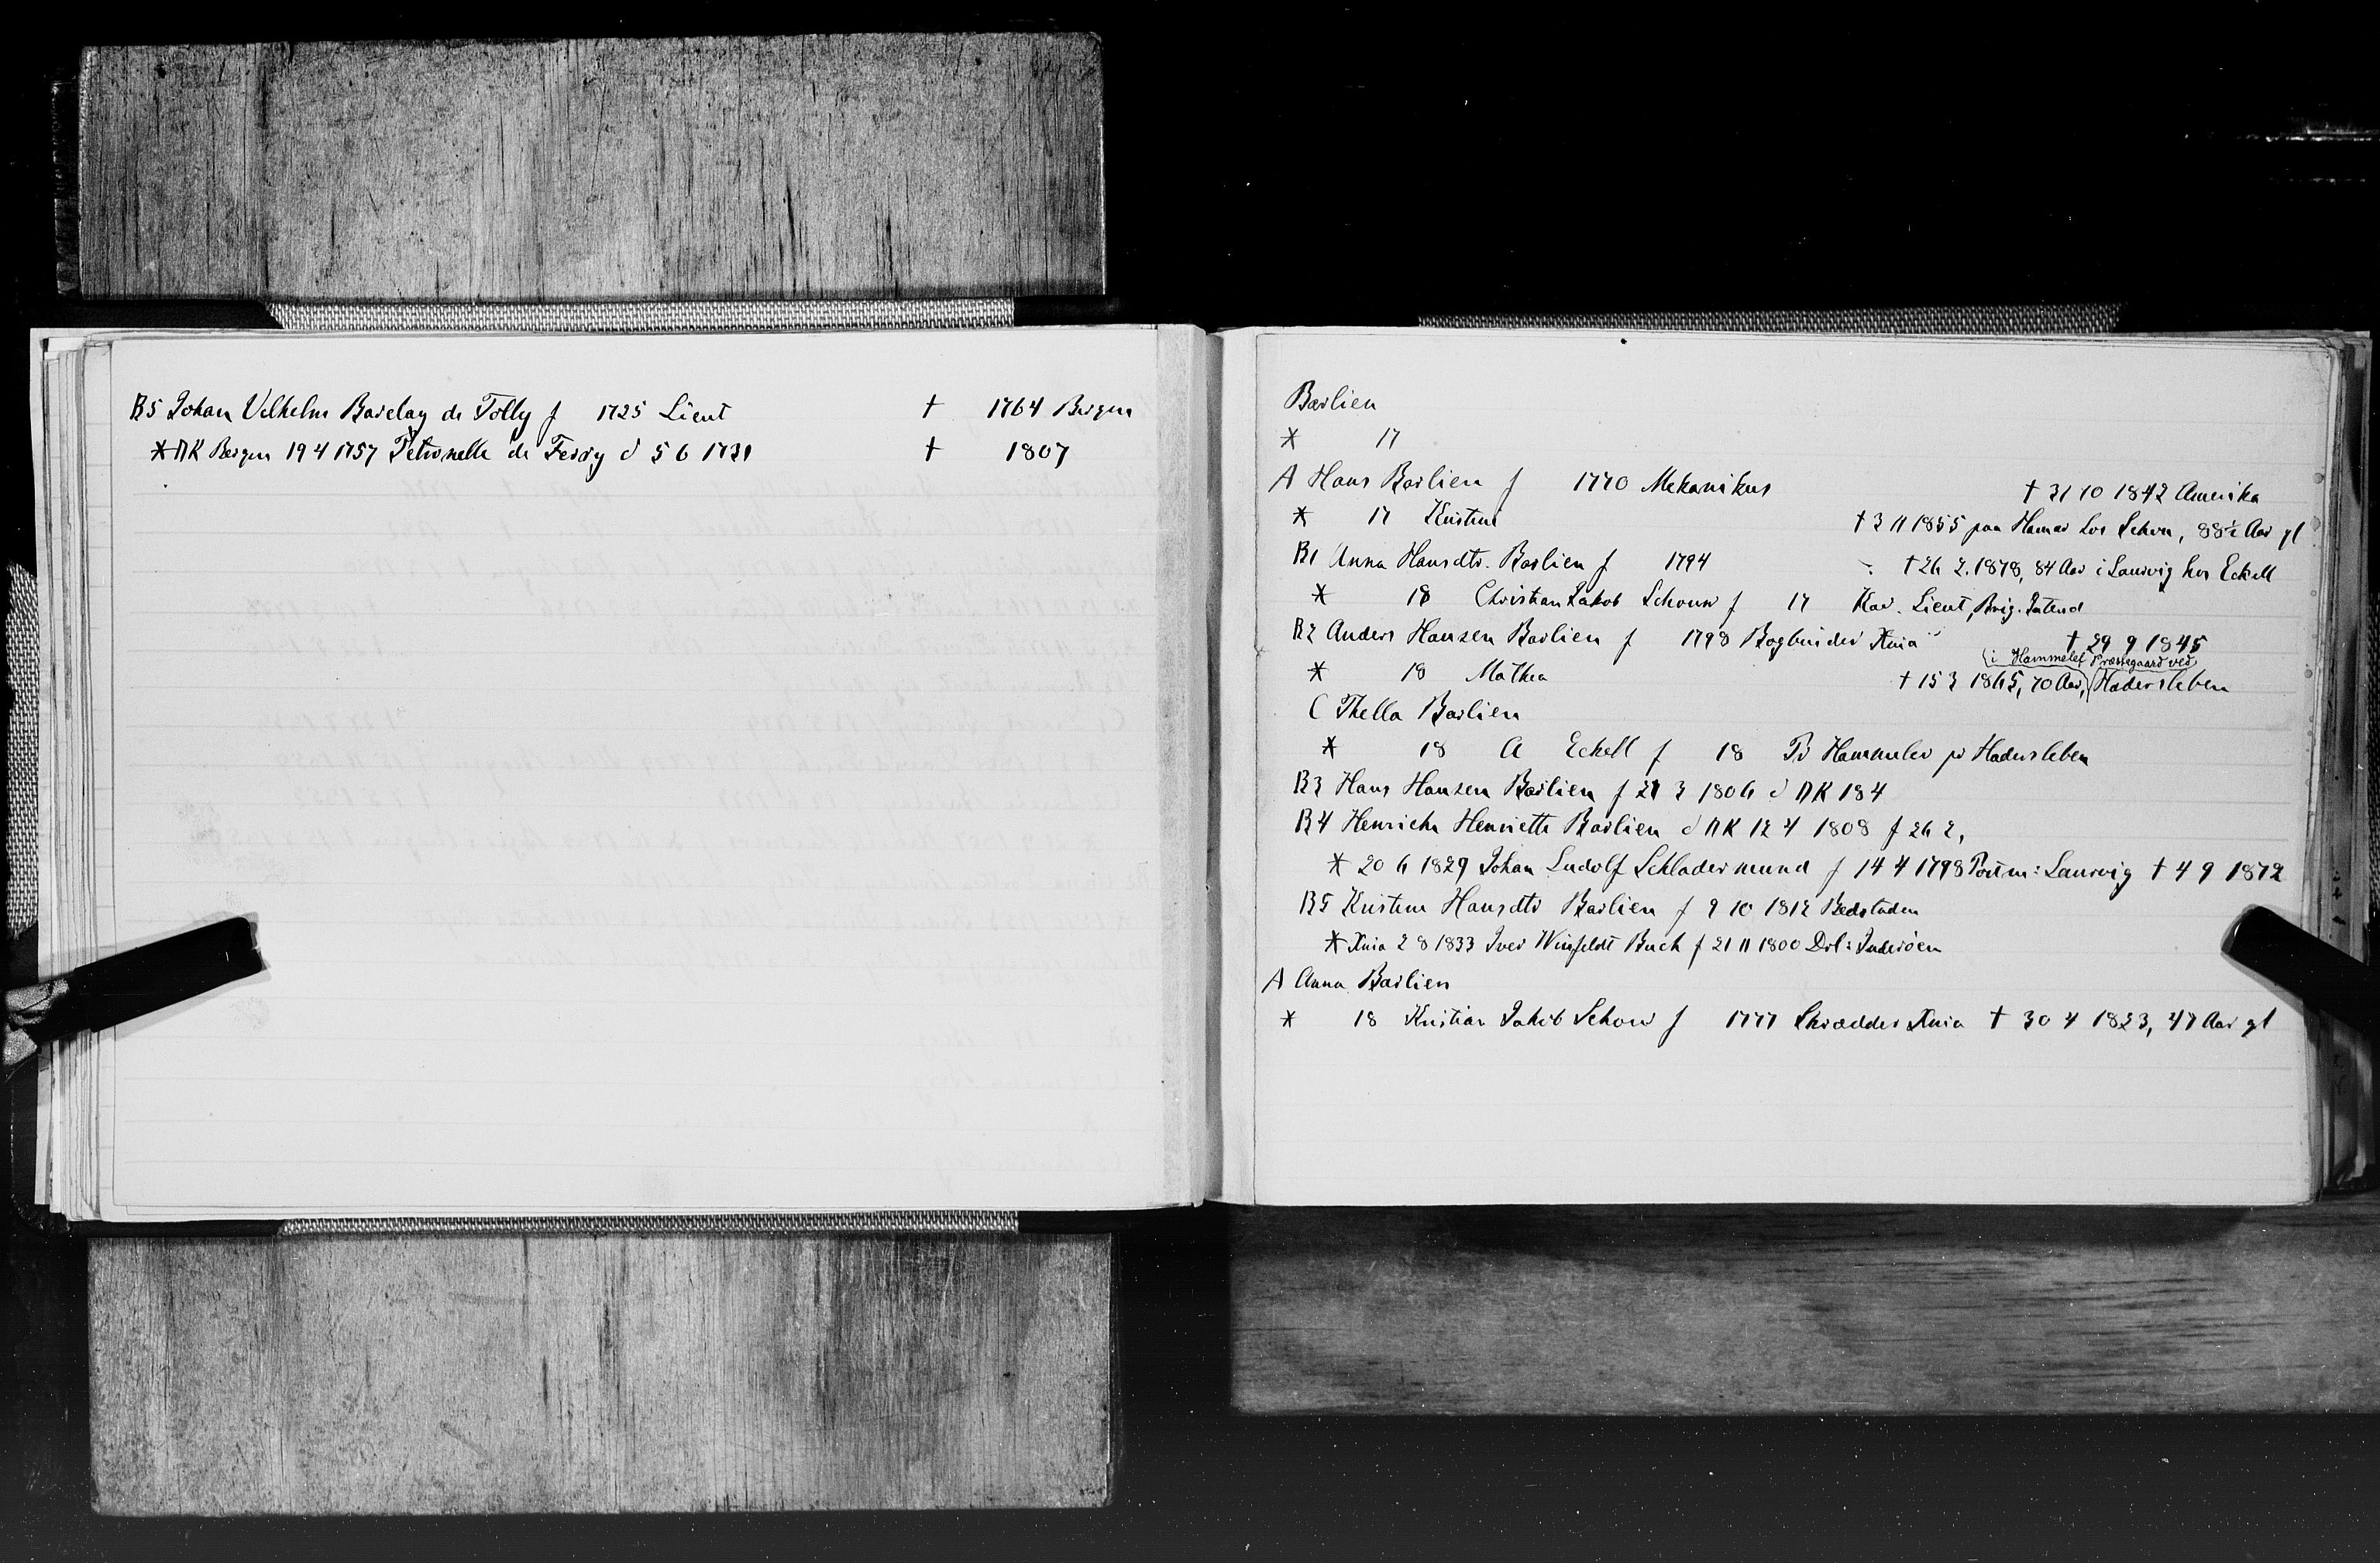 B5 Johan Vilhelm Barclay de Tolly f 1725 Lieut † 1764 Bergen
* NK Bergen 19 4 1757 Petronelle de Ferry d 5 6 1731 † 1807
Barlien
* 17
A Hans Barlien f 1770 Mekanikus † 31 10 1842 Amerika
* 17 Kristine † 3 11 1855 paa Hamar hos Schou, 88½ Aar gl
B1 Anna Hansdtr. Barlien f 1794 † 26 2. 1878, 84 Aar i Laurvig hos Eckell
* 18 Christian Jakob Schouw f 17 Kav. Lieut, Brig. Intend
B2 Anders Hansen Barlien f 1798 Bogbinder Xnia † 29 9 1845
* 18 Mathea † 15 3 1865, 70 Aar, (i Hammelef Præstegaard ved Hadersleben
C Thella Barlien
* 18 A Eckell f 18 Pr Hammelev pr Hadersleben
B3 Hans Hansen Barlien f 21 3 1806 d NK 18 4
B4 Henricha Henriette Barlien d NK 12 4 1808 f 26 2,
* 20 6 1829 Johan Ludolf Schladermund f 14 4 1798 Postm: Laurvig † 4 9 1872
B5 Kristine Hansdtr Barlien f 9 10 1812 Bedstaden
* Xnia 2 8 1833 Iver Wingfeldt Buch f 21 11 1800 Drl: Inderöen
A Anna Barlien
* 18 Kristian Jakob Schow f 1777 Skrædder Xnia † 30 4 1823, 47 Aar gl